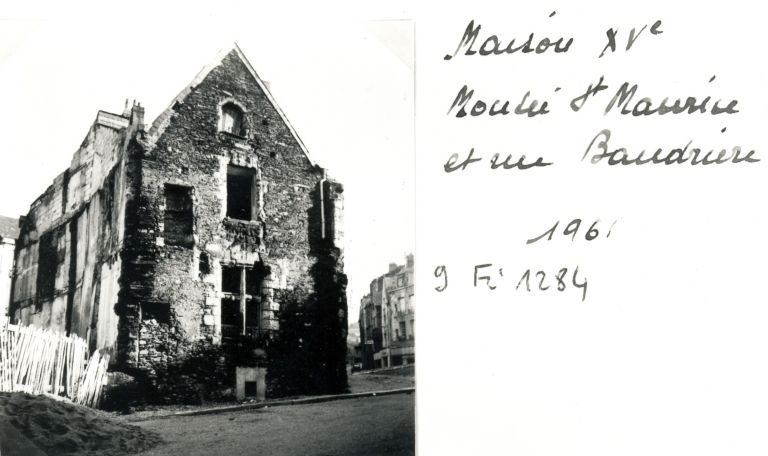 Maison XVe
Montée St Maurice
et rue Baudrière
1961
9 Fi 1284